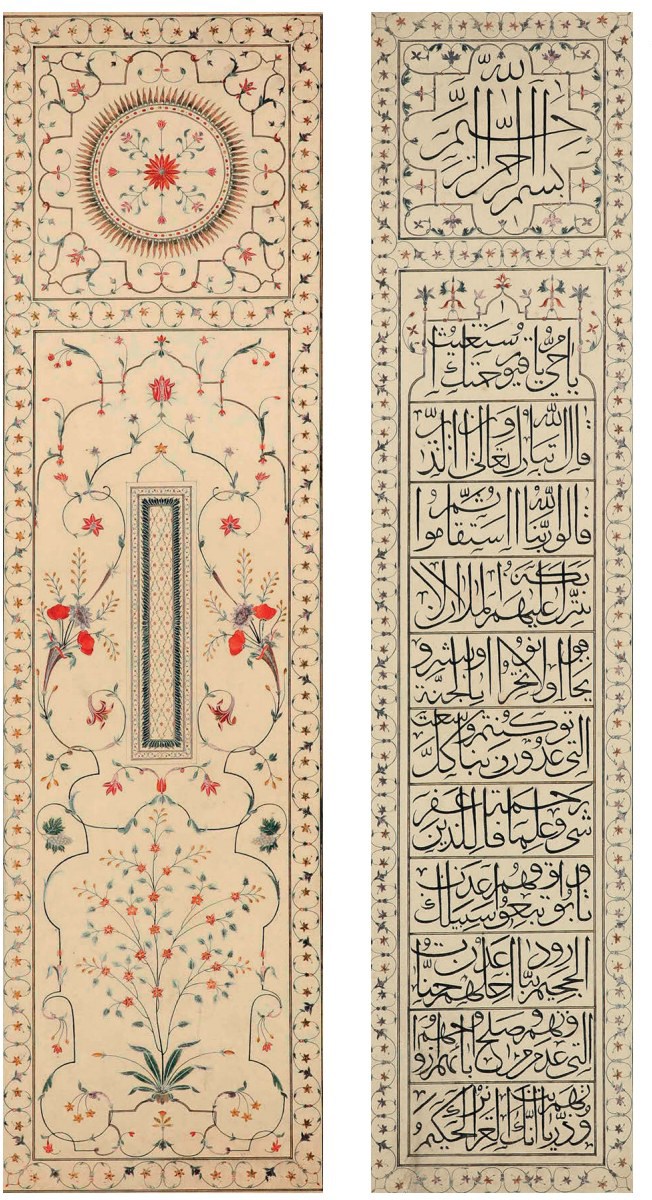 بسم الله الرحمن الرحيم
يا حي يا قيوم برحمتك استغيث
قال الله تبارك وتعالى ان الذين
قالوا ربنا الله ثم استقاموا
تتنزل عليهم الملائكة الا
تخافوا ولا تحزنوا وابشروا بالجنة
التي كنتم توعدون ربنا وسعت كل
شي رحمة وعلما فاغفر للذين
تابوا واتبعوا سبيلك وقهم عذاب
الجحيم ربنا وادخلهم جنات عدن
التي وعدتهم ومن صلح من ابائهم وازواجهم
وذرياتهم انك انت العزيز الحكيم